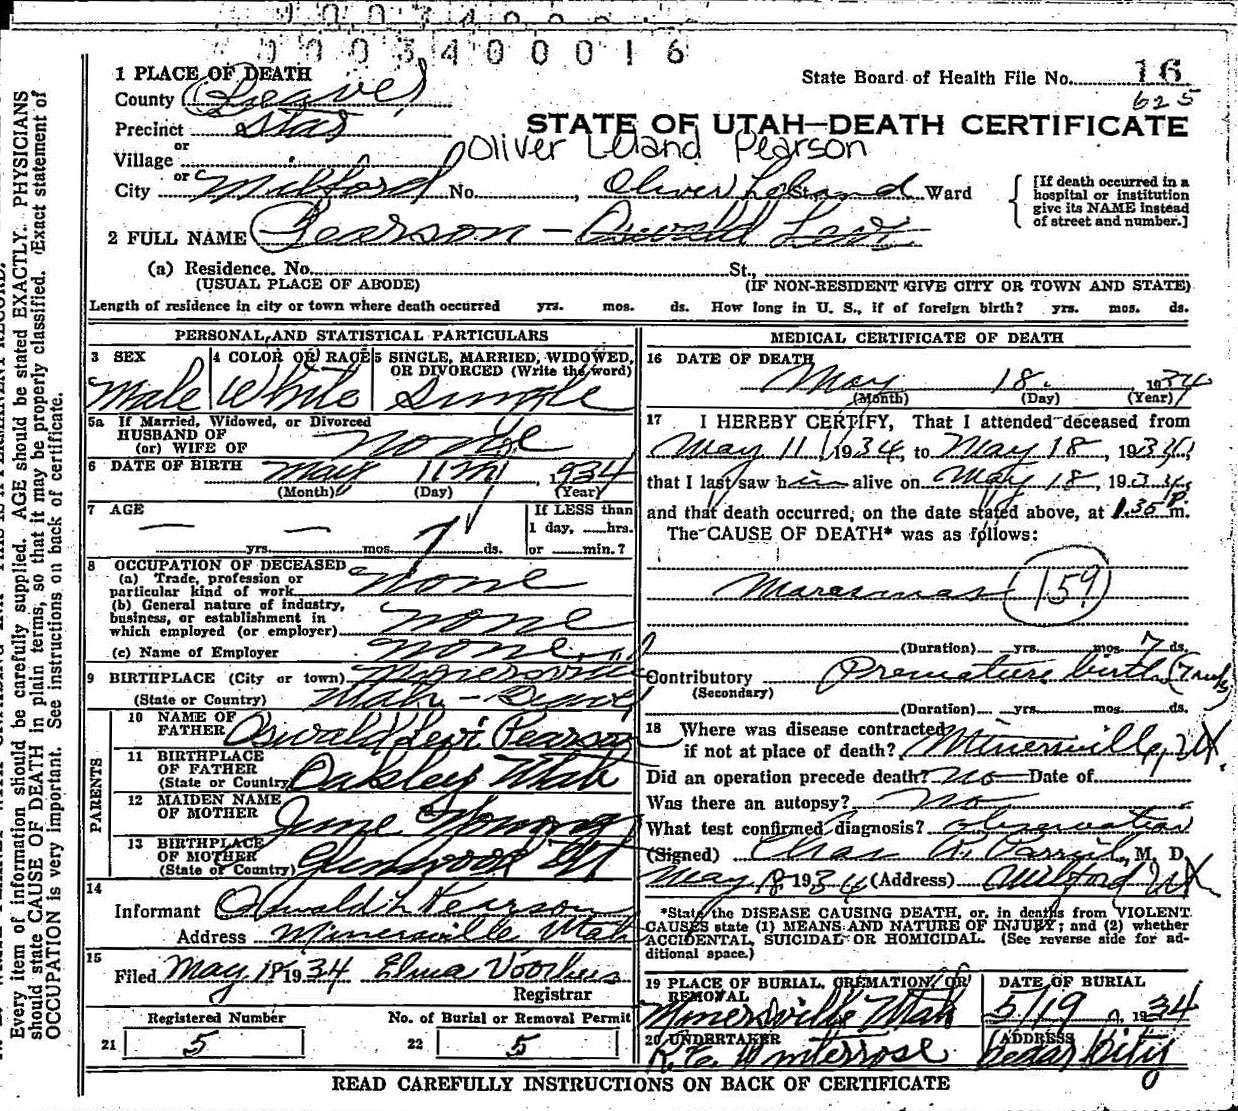 0003400016
1 PLACE OF DEATH
State Board of Health File No. 16
County Beaver
625
Precinct Star
STATE OF UTAH—DEATH CERTIFICATE
or
Village
Oliver Leland Pearson
or
City Milford No. , Oliver Leland St. Ward
[If death occurred in a hospital or institution give its NAME instead of street and number.]
2 FULL NAME Pearson - Oswald Levi
(a) Residence. No. St.,
(USUAL PLACE OF ABODE) (IF NON-RESIDENT GIVE CITY OR TOWN AND STATE)
Length of residence in city or town where death occurred yrs. mos. ds. How long in U. S., if of foreign birth? yrs. mos. ds.
PERSONAL AND STATISTICAL PARTICULARS
3 SEX
Male
4 COLOR OR RACE
White
5 SINGLE, MARRIED, WIDOWED,
OR DIVORCED (Write the word)
Single
5a If Married, Widowed, or Divorced
HUSBAND OF
(or) WIFE OF None
6 DATE OF BIRTH May 11th, 1934
(Month) (Day) (Year)
7 AGE
— yrs. — mos. 7 ds.
If LESS than
1 day, hrs.
or min.?
8 OCCUPATION OF DECEASED
(a) Trade, profession or
particular kind of work None
(b) General nature of industry,
business, or establishment in
which employed (or employer) None
(c) Name of Employer None
9 BIRTHPLACE (City or town) Minersville
(State or Country) Utah -
PARENTS
10 NAME OF
FATHER Oswald Levi Pearson
11 BIRTHPLACE
OF FATHER
(State or Country) Oakley Utah
12 MAIDEN NAME
OF MOTHER June
13 BIRTHPLACE
OF MOTHER
(State or Country) Glenwood Ut
14
Informant Oswald L Pearson
Address Minersville Utah
15
Filed May 18 1934 Elma Voorhees
Registrar
Registered Number
21 5
No. of Burial or Removal Permit
22 5
MEDICAL CERTIFICATE OF DEATH
16 DATE OF DEATH
May 18. 1934
(Month) (Day) (Year)
17 I HEREBY CERTIFY, That I attended deceased from
May 11, 1934, to May 18, 1934,
that I last saw him alive on May 18, 1934,
and that death occurred, on the date stated above, at 1:35 P.m.
The CAUSE OF DEATH* was as follows:
Marasmas 159
(Duration) yrs. mos. 7 ds.
Contributory Premature birth
(Secondary)
(Duration) yrs. mos. ds.
18 Where was disease contracted
if not at place of death? Minersville, Ut.
Did an operation precede death? No Date of
Was there an autopsy? No
What test confirmed diagnosis? observation
(Signed) Chas R. Parrish, M. D.
May 18 1934 (Address) Milford Ut
*State the DISEASE CAUSING DEATH, or, in deaths from VIOLENT
CAUSES state (1) MEANS AND NATURE OF INJURY; and (2) whether
ACCIDENTAL, SUICIDAL OR HOMICIDAL. (See reverse side for ad-
ditional space.)
19 PLACE OF BURIAL, CREMATION OR
REMOVAL
Minersville Utah
DATE OF BURIAL
5/19, 1934
20 UNDERTAKER
Winterrose
ADDRESS
Cedar City
READ CAREFULLY INSTRUCTIONS ON BACK OF CERTIFICATE
Every item of information should be carefully supplied. AGE should be stated EXACTLY. PHYSICIANS
should state CAUSE OF DEATH in plain terms, so that it may be properly classified. Exact statement of
OCCUPATION is very important. See instructions on back of certificate.